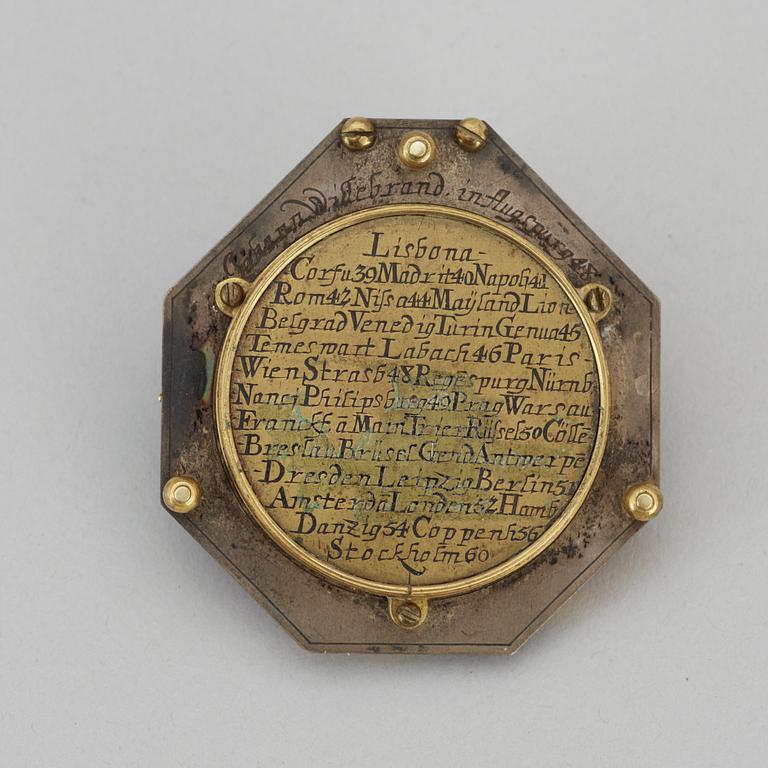 Johann Willebrand. in Augspurg 48
Lisbona-
Corfu 39 Madrit 40 Napoli 41
Rom 42 Nissa 44 Mayland Lion-
Belgrad Venedig Turin Genua 45
Temeswart Labach 46 Paris-
Wien Strasb 48 Regespurg Nürnb
Nanci Philipsburg 49 Prag Warsau
Franckf a Main Trier Rüssel 50 Cölle-
Breslau Brüsel Gend Antwerpe
-Dresden Leipzig Berlin 51
Amsterda Londen 52 Hamb
Danzig 54 Coppenh 56
Stockholm 60